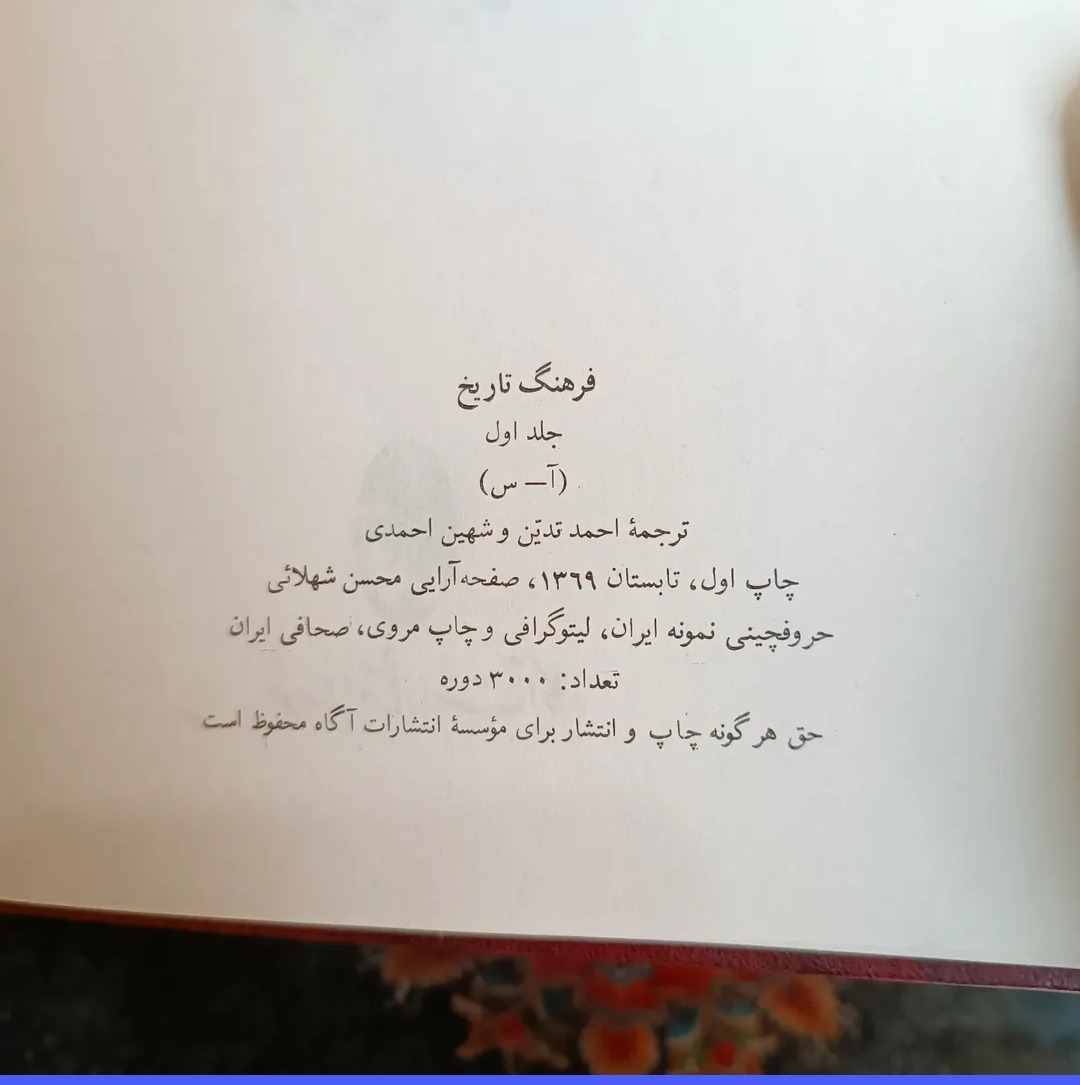 فرهنگ تاریخ
جلد اول
(آ — س)
ترجمهٔ احمد تدیّن و شهین احمدی
چاپ اول، تابستان ۱۳۶۹، صفحه‌آرایی محسن شهلائی
حروفچینی نمونه ایران، لیتوگرافی و چاپ مروی، صحافی ایران
تعداد: ۳۰۰۰ دوره
حق هر گونه چاپ و انتشار برای مؤسسهٔ انتشارات آگاه محفوظ است